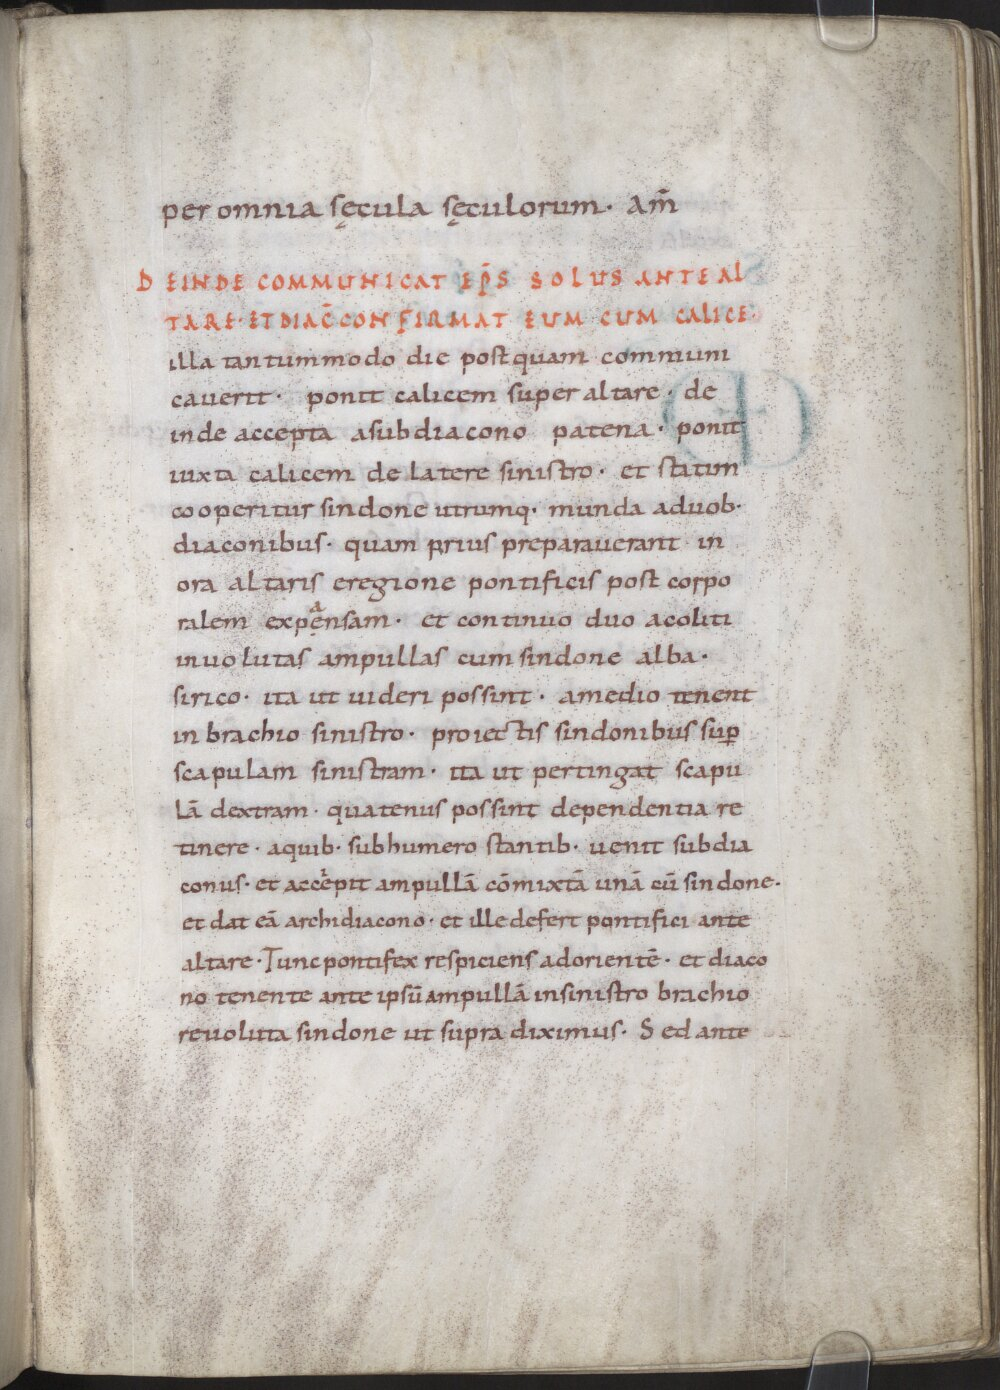 per omnia sęcula sęculorum· am̅
DEINDE COMMUNICAT EP̅S SOLUS ANTE AL
TARE· ET DIAC̅ CONFIRMAT EUM CUM CALICE·
illa tantummodo die postquam communi
cauerit· ponit calicem super altare· de
inde accepta asubdiacono patena· ponit
iuxta calicem de latere sinistro· et statim
cooperitur sindone utrumq· munda aduob·
diaconibus· quam prius preparauerant in
ora altaris eregione pontificis post corpo
ralem expęᵃnsam· et continuo duo acoliti
inuolutas ampullas cum sindone alba·
sirico· ita ut uideri possint· amedio tenent
in brachio sinistro· proiectis sindonibus sup̅
scapulam sinistram· ita ut pertingat scapu
lā dextram· quatenus possint dependentia re
tinere· aquib· subhumero stantib· uenit subdia
conus· et acceͥpit ampullā cōmixtā unā cū sindone·
et dat eā archidiacono· et ille defert pontifici ante
altare· Tunc pontifex respiciens adorientē· et diaco
no tenente ante ipsū ampullā insinistro brachio
reuoluta sindone ut supra diximus· Sed ante